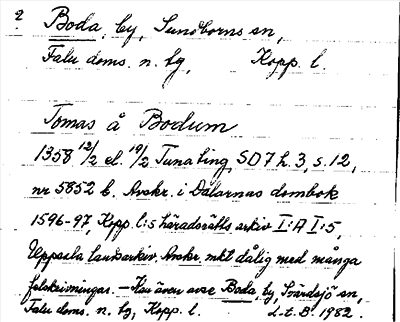 2 Boda, by, Sundborns sn,
Falu doms. n. bg, Kopp. l.
Tomas å Bodum
1358 12/2 el. 19/2 Tuna ting, SD 7 h. 3, s. 12,
nr 5852 b. Avskr. i Dalarnas dombok
1596-97, Kopp. l:s häradsrätts arkiv I:A I:5,
Uppsala landsarkiv. Avskr. mkt dålig med många
felskrivningar. – Kan även avse Boda, by, Svärdsjö sn,
Falu doms. n. bg, Kopp. l. L.t.B. 1982.